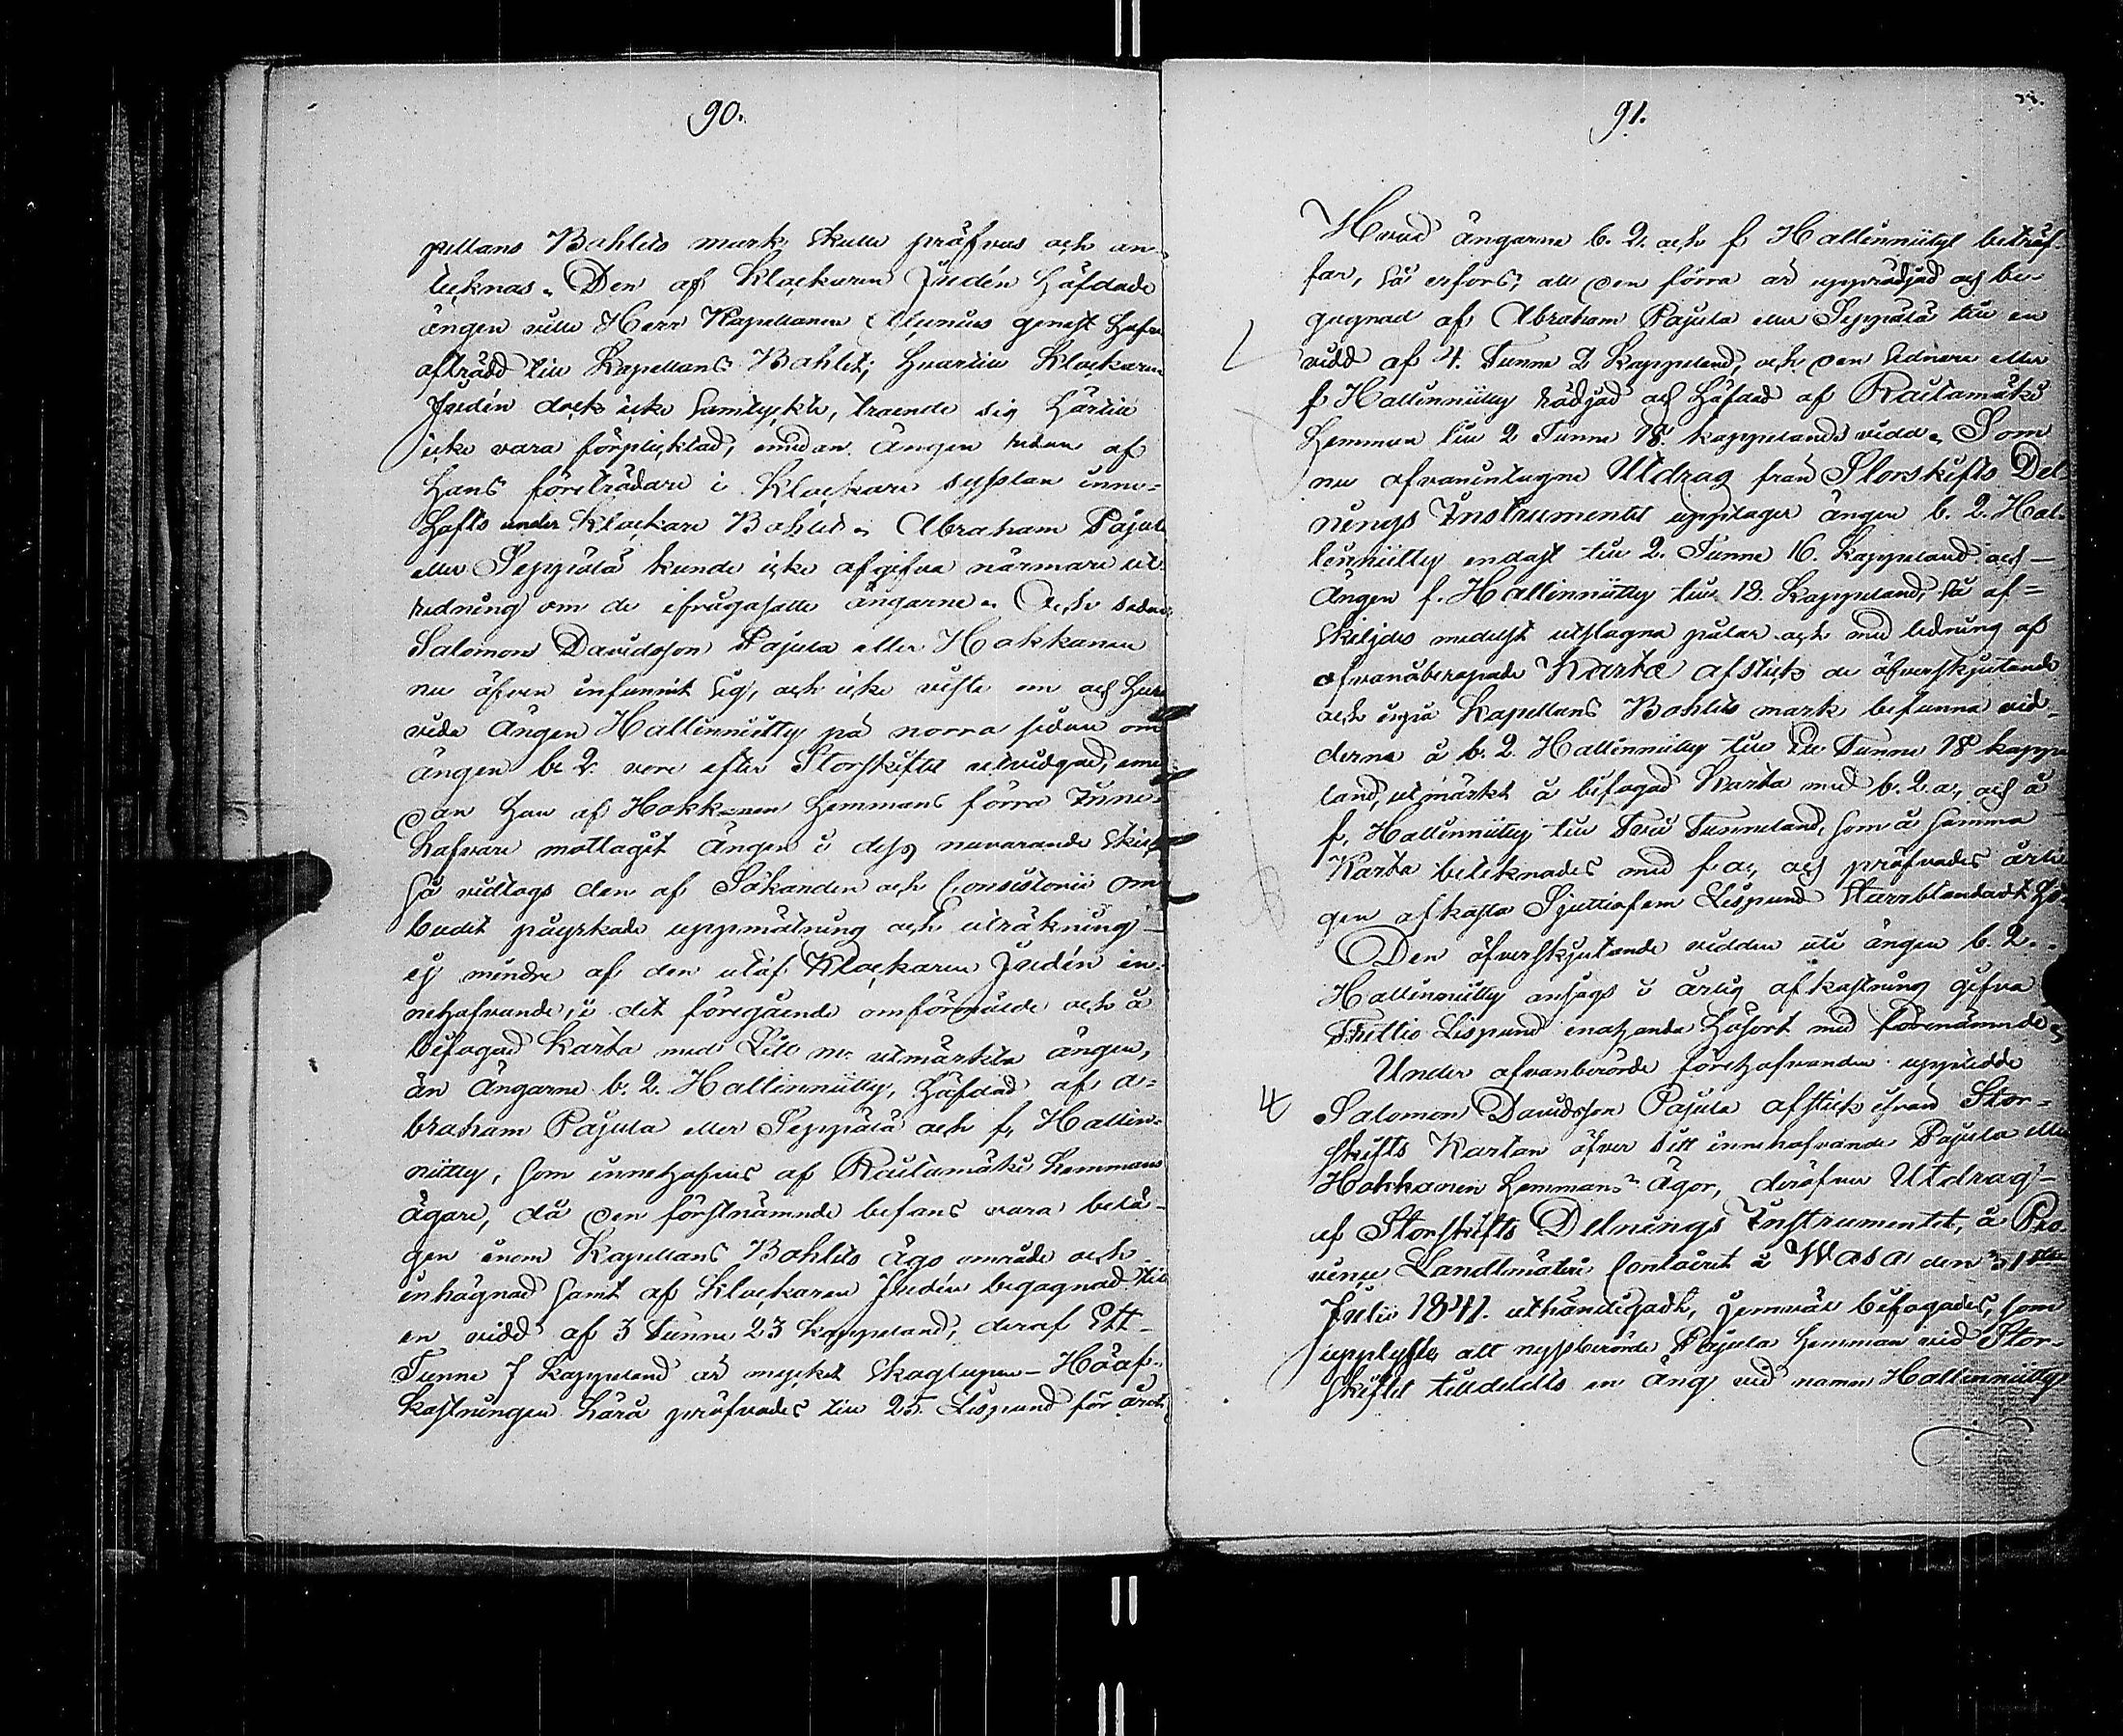 90.
pellans Bohlets mark skulle pröfvas och an-
tecknas. Den af Klockaren Judén häfdade
ängen ville Herr Kapellanen genast hafva
afträdd till Kapellans Bohlet; hvartill Klockaren
Judén dock icke samtyckte, troende sig härtill
icke vara förpligtad, emedan ängen redan af
hans företrädare i Klockare sysslan inne-
hafts under Klockare Bohlet. Abraham Pajula
eller Seppälä kunde icke afgifva närmare ut
redning om de ifrågasatte ängarne. Och sedan
Salomon Davidsson Pajula eller Hakkanen
nu äfven infunnit sig, och icke visste om och huru
vida ängen Hallinniitty på norra sidan om
ängen b. 2. vore efter Storskiftet utvidgad, eme
dan han af Hokkanen hemmans förra Inne-
hafvare mottagit ängen i dess nuvarande skick
så vidtogs den af Sökanden och Consistorii om
budet påyrkade uppmätning och uträkning
ej mindre af den utaf Klockaren Judén in
nehafvande, i det föregående omförmälde och å
bifogad Karta med Litt m. utmärkta ängen,
än ängarne b. 2. Hallinniitty, häfdad af A-
braham Pajula eller Seppälä och f, Hallin-
niitty, som innehafves af Rautamäki hemmans
ägare, då den förstnämnde befans vara belä-
gen inom Kapellans Bohlets ägo område och
inhägnad samt af Klockaren Judén begagnad till
en vidd af 3 Tunne 23 kappeland, deraf Ett
Tunne 7 kappeland är mycket skoglupen - Höaf-
kastningen härå pröfvades till 25. Lispund för året.
91.
Hvad ängarne b. 2. och f Hallinniityt beträf-
far, så erfors, att den förra är upprödjad och be-
gagnad af Abraham Pajula eller Seppälä till en
vidd af 4. Tunne 2 Kappeland, och den sednare eller
f Hallinniitty rödjad och häfdad af Rautamäki
hemman till 2 Tunne 18. kappelands vidd. Som
nu ofvanintagne Utdrag från Storskifts Del-
nings Instrumentet upptager ängen b. 2. Hal-
linniitty endast till 2. Tunne 16. Kappeland och
ängen f. Hallinniitty till 18. Kappeland, så af-
skiljdes medelst utslagna pålar och med ledning af
ofvanåberopade Karta afstick de öfverskjutande
och inpå Kapellans Bohlets mark befunna vid-
derna å b. 2. Hallinniitty till Ett Tunne 18 kappe
land, utmärkt å bifogad Karta med b. 2. a, och å
f, Hallinniitty till Två Tunneland, som å samma
Karta betecknades med f. a, och pröfvades årli
gen afkasta Sjuttiofem Lispund Starrblandadt hö.
Den öfverskjutande vidden uti ängen b. 2.
Hallinniitty ansågs i årlig afkastning gifva
Trettio Lispund enahanda hösort med förenämnde.
Under ofvanberörde företafvanden uppvidde
4 Salomon Davidsson Pajula afstick ifrån Stor-
skifts Kartan öfver sitt innehafvande Pajula eller
Hokkanen hemmans ägor, deröfver Utdrag
af Storskifts Delnings Instrumentet, å Pro
vincie Landtmäteri Contoiret i Wasa den 31sta
Julii 1841. uthändigadt, jemväl bifogades, som
upplyste, att nyssberörde Pajula hemman vid Stor-
skiftet tilldelats en äng vid namn Hallinniitty